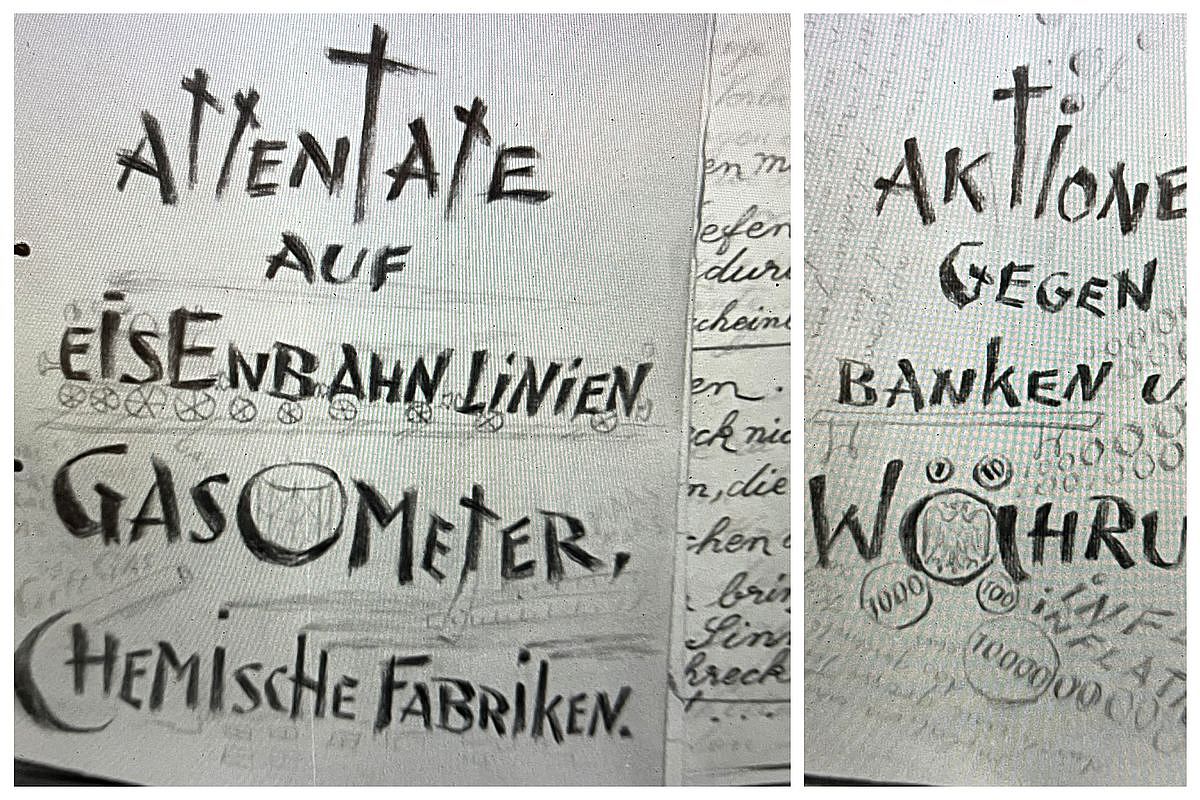 ATTENTATE
AUF
EISENBAHNLINIEN
GASOMETER,
CHEMISCHE FABRIKEN.
en
efen
durc
cheine
en.
ck nic
n, die
chen
brin
Sinn
hreck
AKTIONE
GEGEN
BANKEN U
WÄHRU
1000
100
10000
INFL
INFLATI